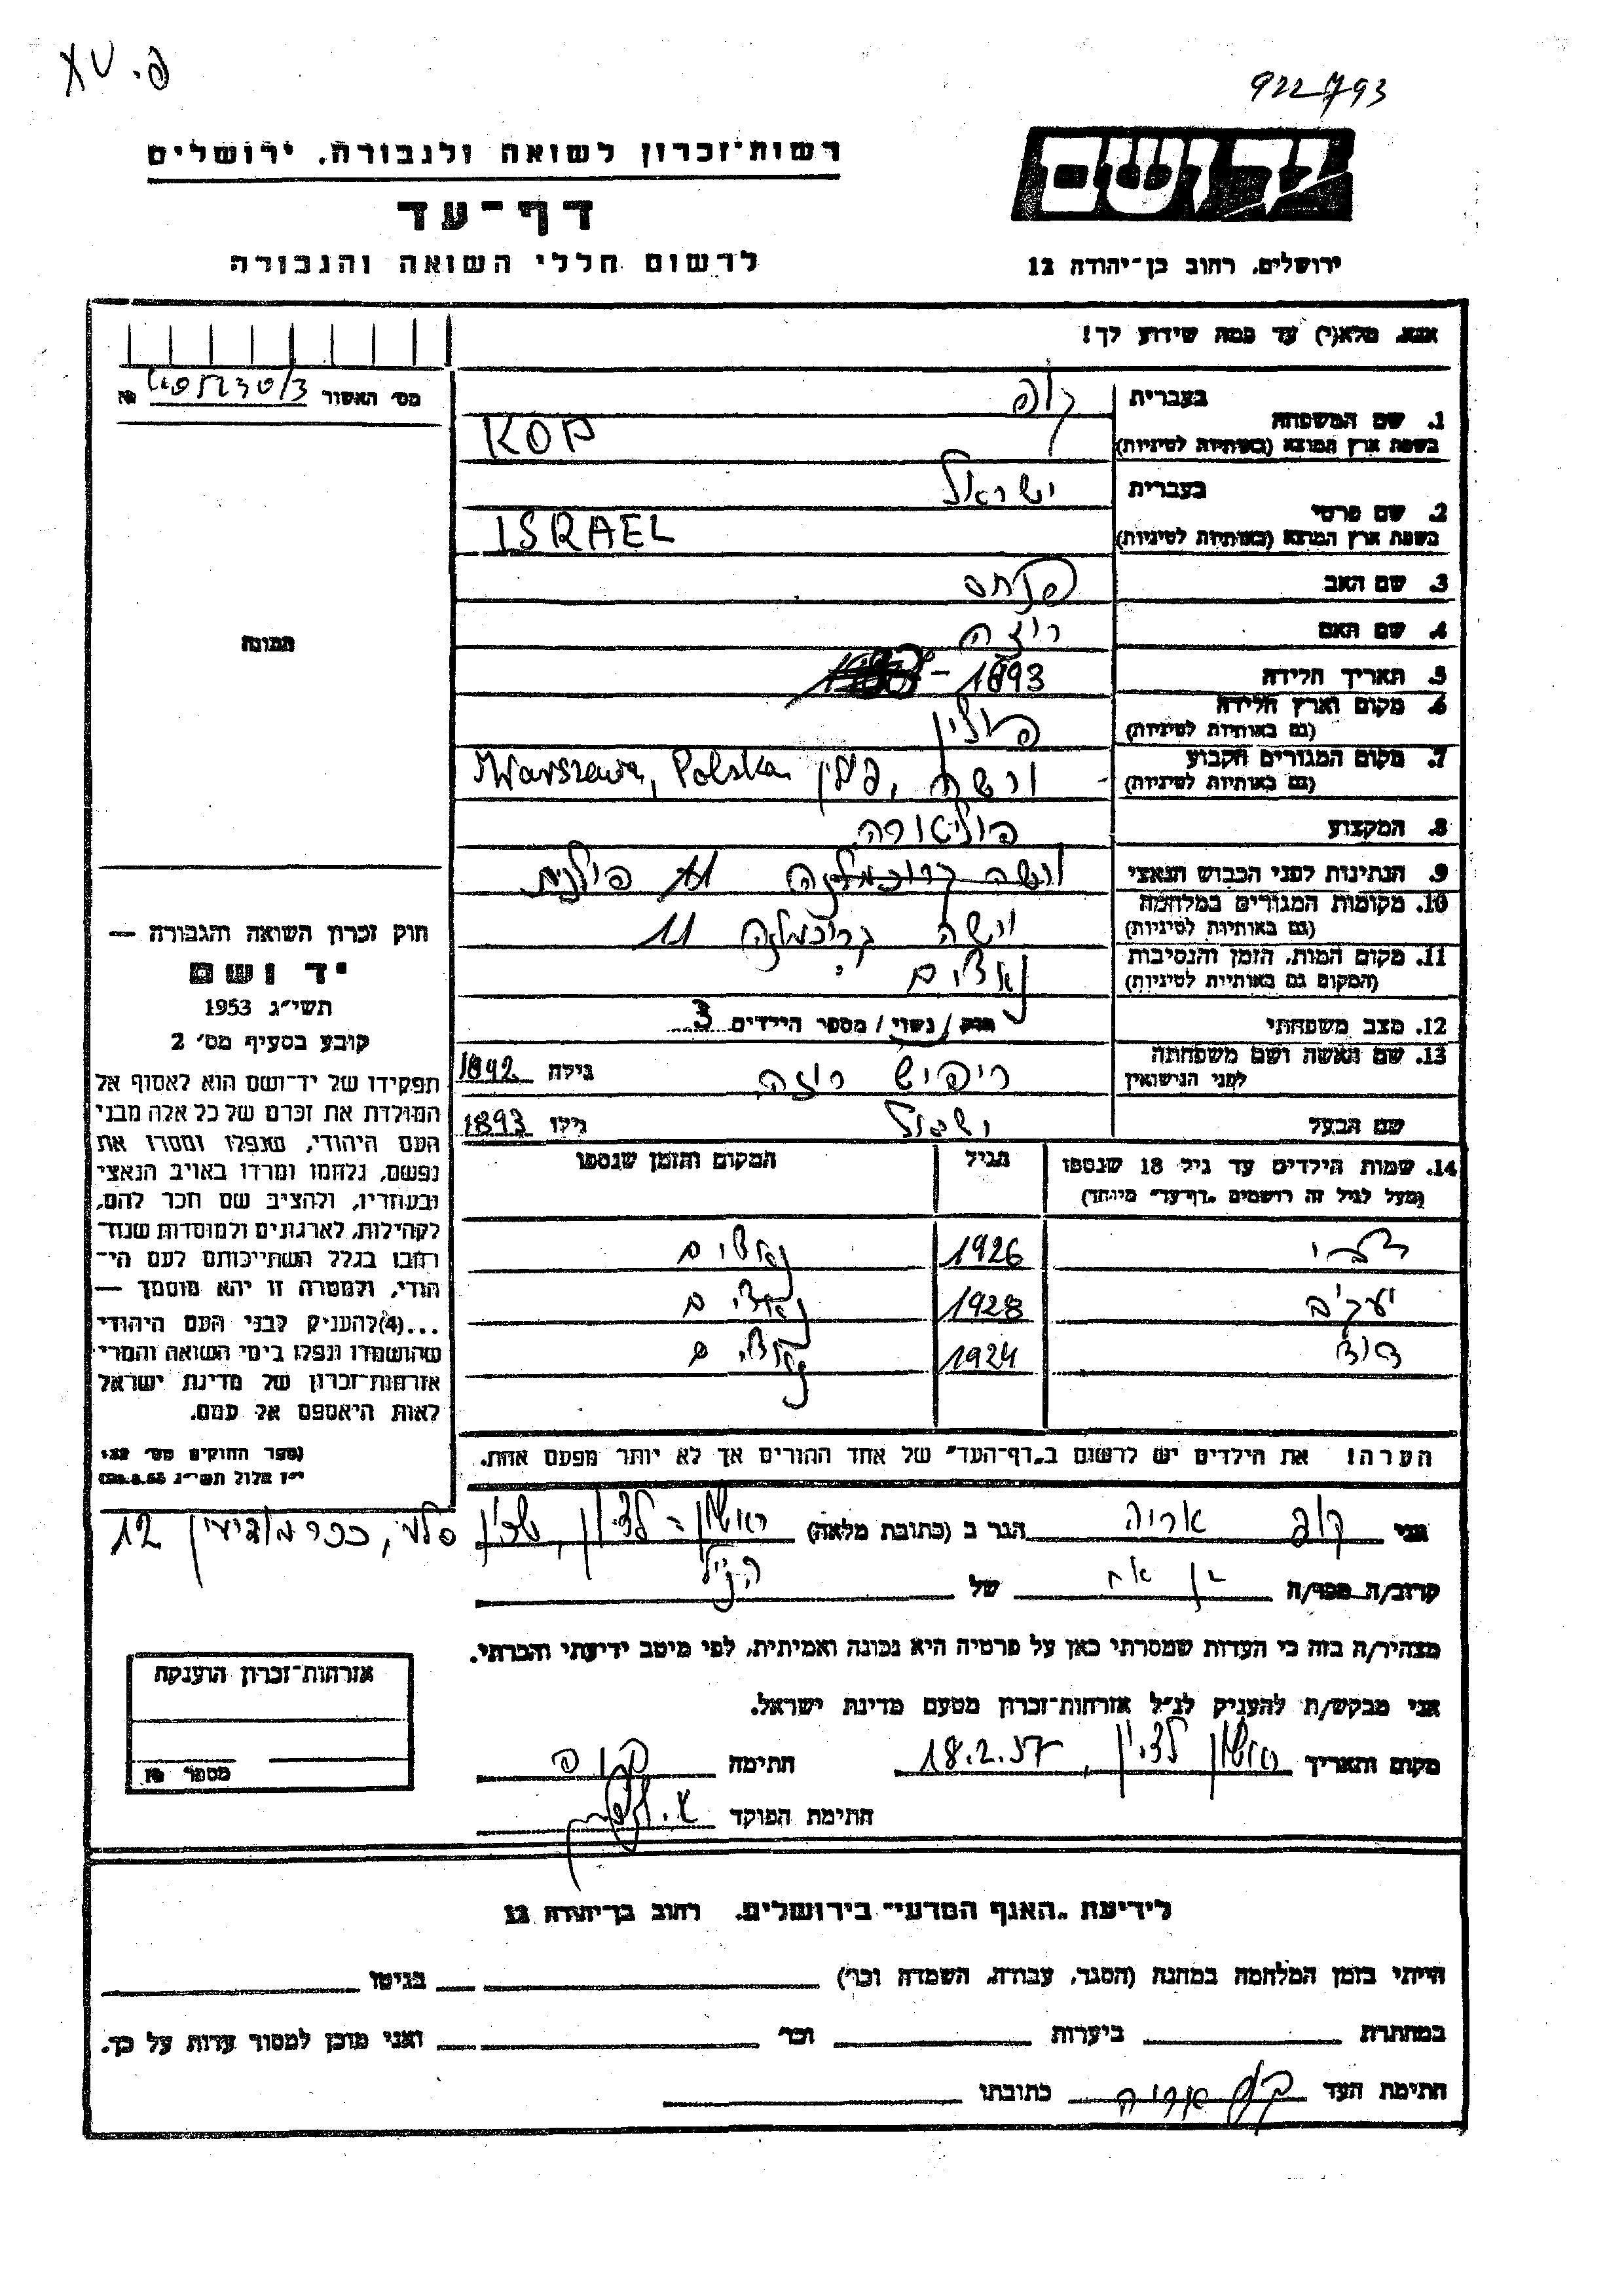 922793
רשות־זכרון לשואה ולגבורה. ירושלים
יד ושם
דף־עד
לרשום חללי השואה והגבורה
ירושלים, רחוב בן־יהודה 12
אנא, מלא(י) עד כמה שידוע לך!
מס' האשור
1. שם המשפחה
בעברית קופ
בשפת ארץ המוצא (באותיות לטיניות) KOP
2. שם פרטי
בעברית ישראל
בשפת ארץ המוצא (באותיות לטיניות) ISRAEL
3. שם האב פנחס
4. שם האם
5. תאריך הלידה 1893
6. מקום וארץ הלידה
(גם באותיות לטיניות) פולין
7. מקום המגורים הקבוע
(גם באותיות לטיניות) ורשה, פולין Warszawa, Polska
8. המקצוע
9. הנתינות לפני הכבוש הנאצי ורשה קרוכמלנה 11 פולנית
10. מקומות המגורים במלחמה
(גם באותיות לטיניות) ורשה קרוכמלנה 11
11. מקום המות, הזמן והנסיבות
(המקום גם באותיות לטיניות)
12. מצב משפחתי רווק / נשוי / מספר הילדים 3
13. שם האשה ושם משפחתה
לפני הנישואין רוזה גילה 1892
שם הבעל ישראל גילו 1893
14. שמות הילדים עד גיל 18 שנספו
(מעל לגיל זה רושמים "דף־עד" מיוחד)
הגיל
המקום והזמן שנספו
צבי 1926
יעקב 1928
דוד 1924
הערה! את הילדים יש לרשום ב"דף־העד" של אחד ההורים אך לא יותר מפעם אחת.
תמונה
חוק זכרון השואה והגבורה —
יד ושם
תשי"ג 1953
קובע בסעיף מס' 2
תפקידו של יד־ושם הוא לאסוף אל
המולדת את זכרם של כל אלה מבני
העם היהודי, שנפלו ומסרו את
נפשם, נלחמו ומרדו באויב הנאצי
ובעוזריו, ולהציב שם וזכר להם,
לקהילות, לארגונים ולמוסדות שנח־
רבו בגלל השתייכותם לעם הי־
הודי, ולמטרה זו יהא מוסמך —
...(4) להעניק לבני העם היהודי
שהושמדו ונפלו בימי השואה והמרי
אזרחות־זכרון של מדינת ישראל
לאות היאספם אל עמם.
(ספר החוקים מס' 132
י"ז אלול תשי"ג
אני קופ אריה הגר ב (כתובת מלאה) ראשון־לציון, שכון סלע, ככר מודיעין 12
קרוב/ה מכר/ה בן אח של הנ"ל
מצהיר/ה בזה כי העדות שמסרתי כאן על פרטיה היא נכונה ואמיתית, לפי מיטב ידיעתי והכרתי.
אני מבקש/ת להעניק לנ"ל אזרחות־זכרון מטעם מדינת ישראל.
מקום ותאריך ראשון לציון, 18.2.57 חתימה קופ
חתימת הפוקד
אזרחות־זכרון הוענקה
מספר
לידיעת "האגף המדעי" בירושלים, רחוב בן־יהודה 12
הייתי בזמן המלחמה במחנה (הסגר, עבודה, השמדה וכו') בגיטו
במחתרת ביערות וכו' ואני מוכן למסור עדות על כך.
חתימת העד קופ אריה כתובתו